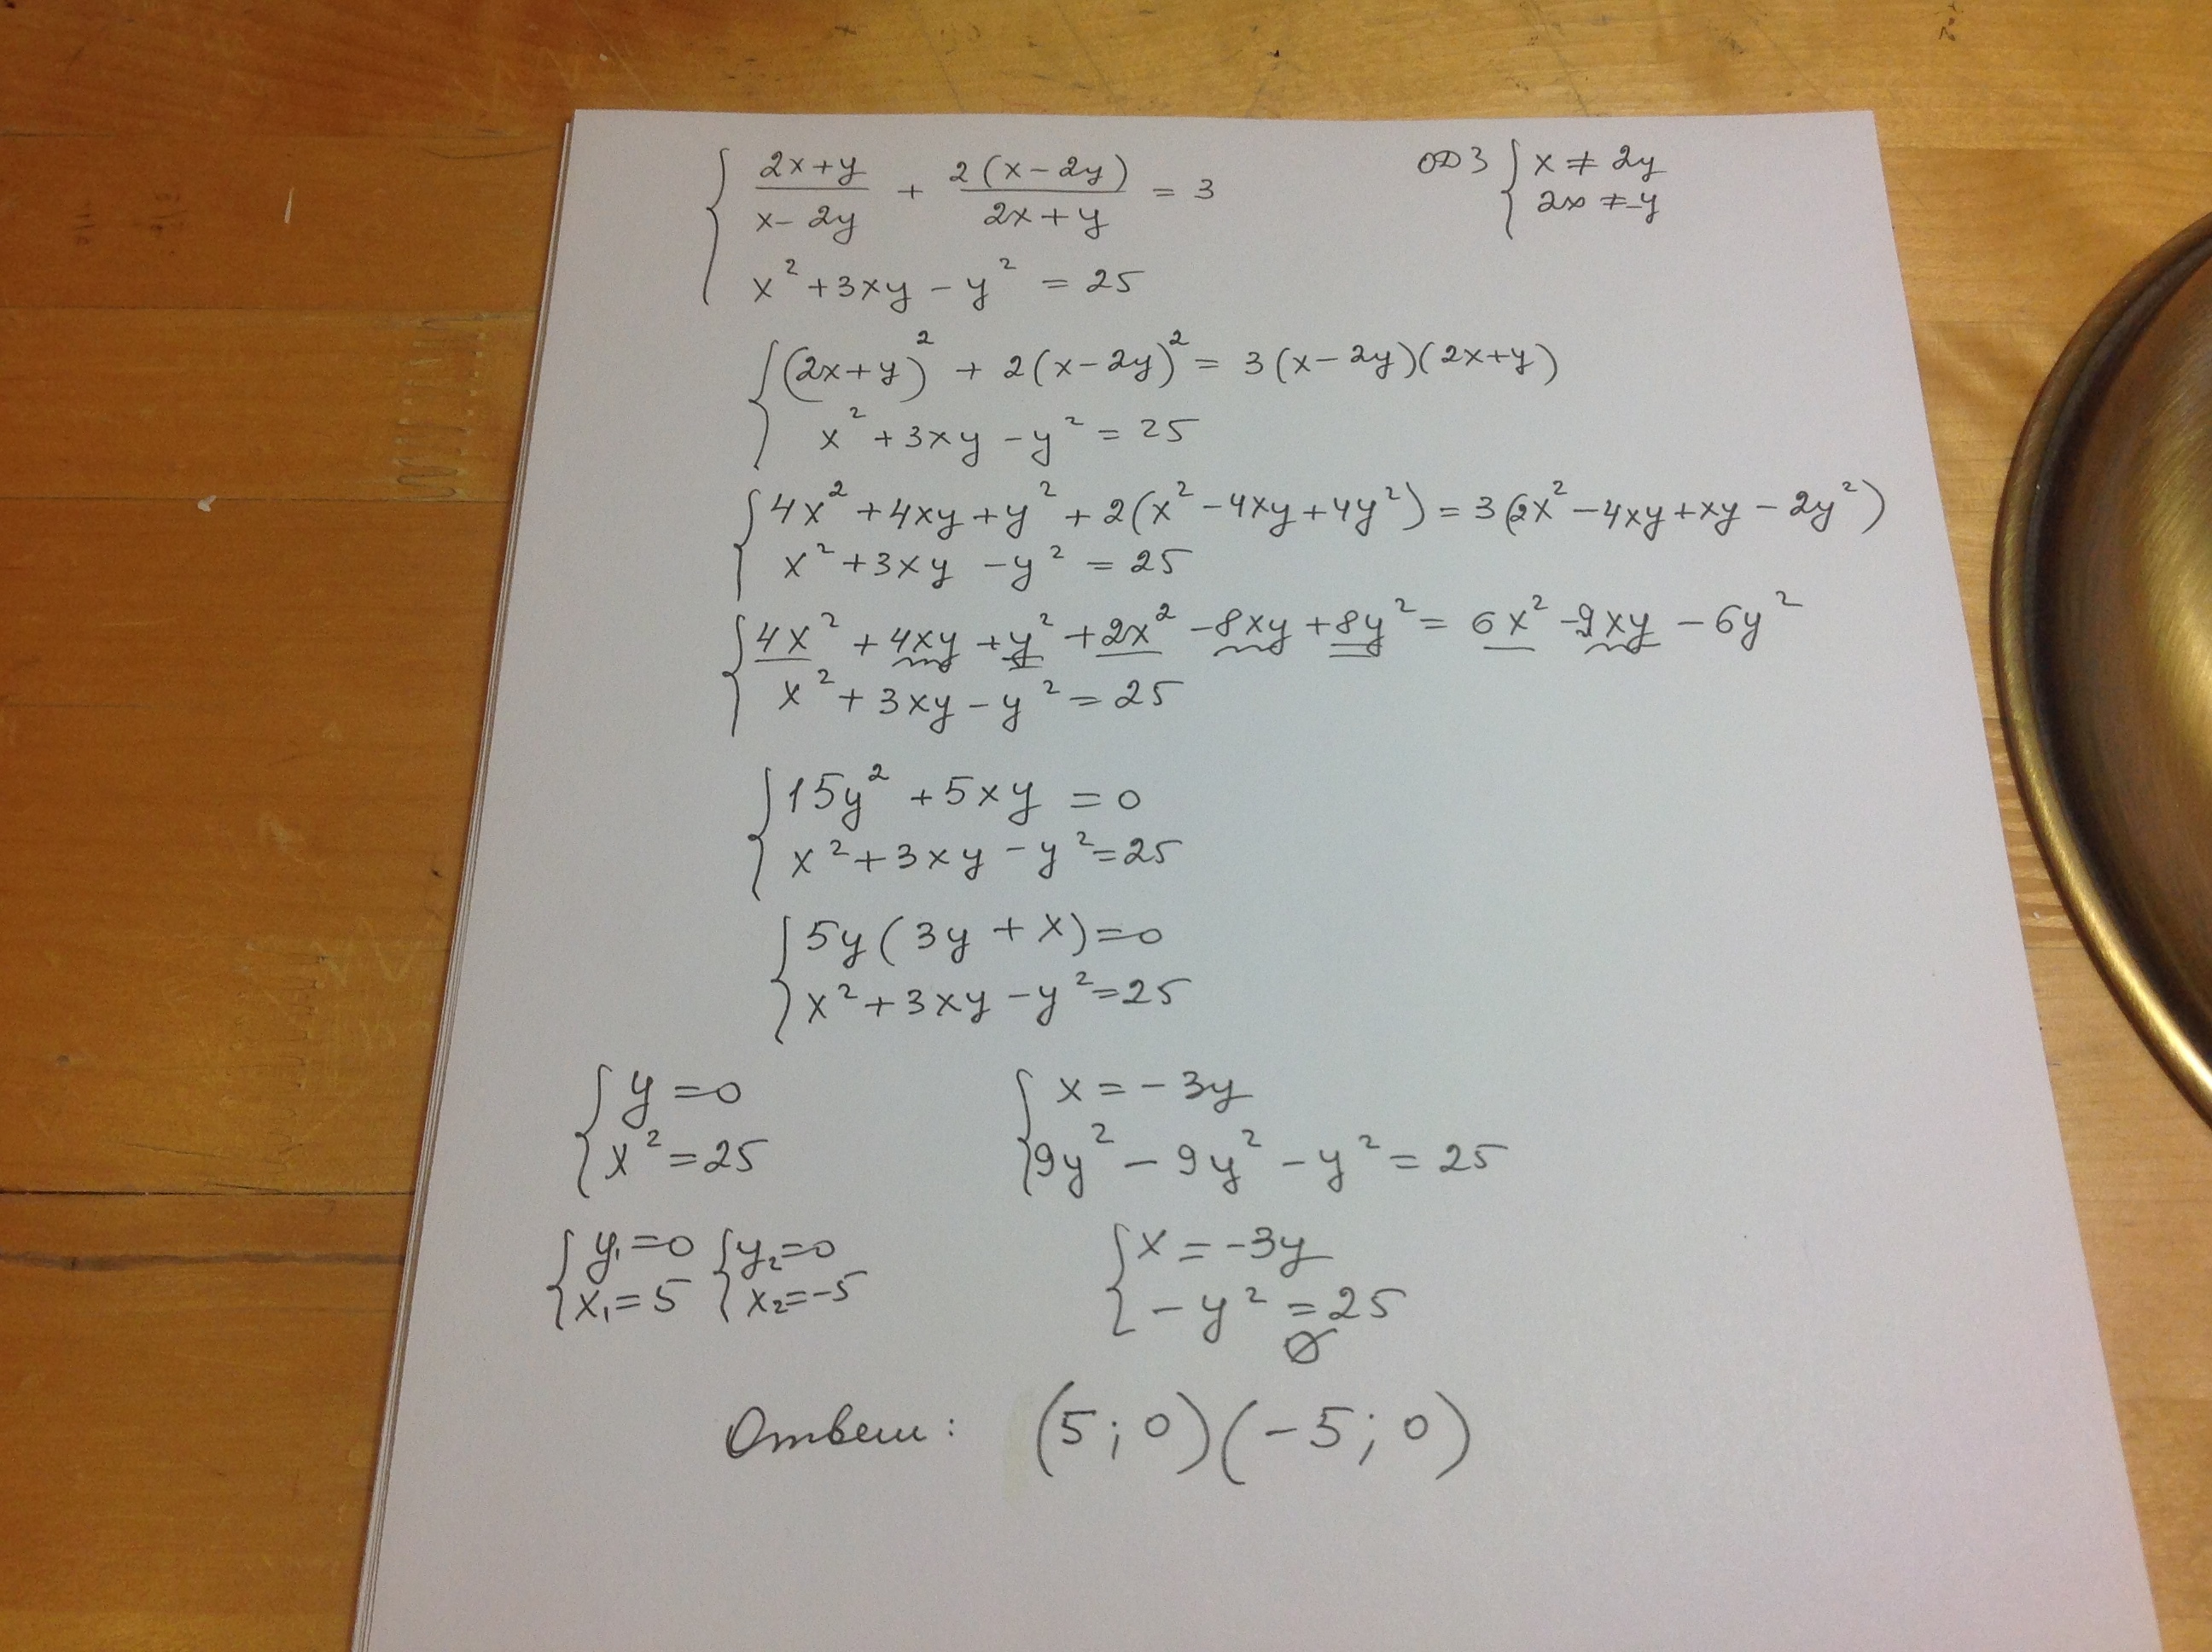 { (2x+y)/(x-2y) + 2(x-2y)/(2x+y) = 3
ОДЗ { x ≠ 2y
2x ≠ -y
x² + 3xy - y² = 25
{ (2x+y)² + 2(x-2y)² = 3(x-2y)(2x+y)
x² + 3xy - y² = 25
{ 4x² + 4xy + y² + 2(x² - 4xy + 4y²) = 3(2x² - 4xy + xy - 2y²)
x² + 3xy - y² = 25
{ 4x² + 4xy + y² + 2x² - 8xy + 8y² = 6x² - 9xy - 6y²
x² + 3xy - y² = 25
{ 15y² + 5xy = 0
x² + 3xy - y² = 25
{ 5y(3y + x) = 0
x² + 3xy - y² = 25
{ y = 0
x² = 25
{ x = -3y
9y² - 9y² - y² = 25
{ y₁ = 0 { y₂ = 0
x₁ = 5 x₂ = -5
{ x = -3y
-y² = 25
∅
Ответ: (5; 0) (-5; 0)